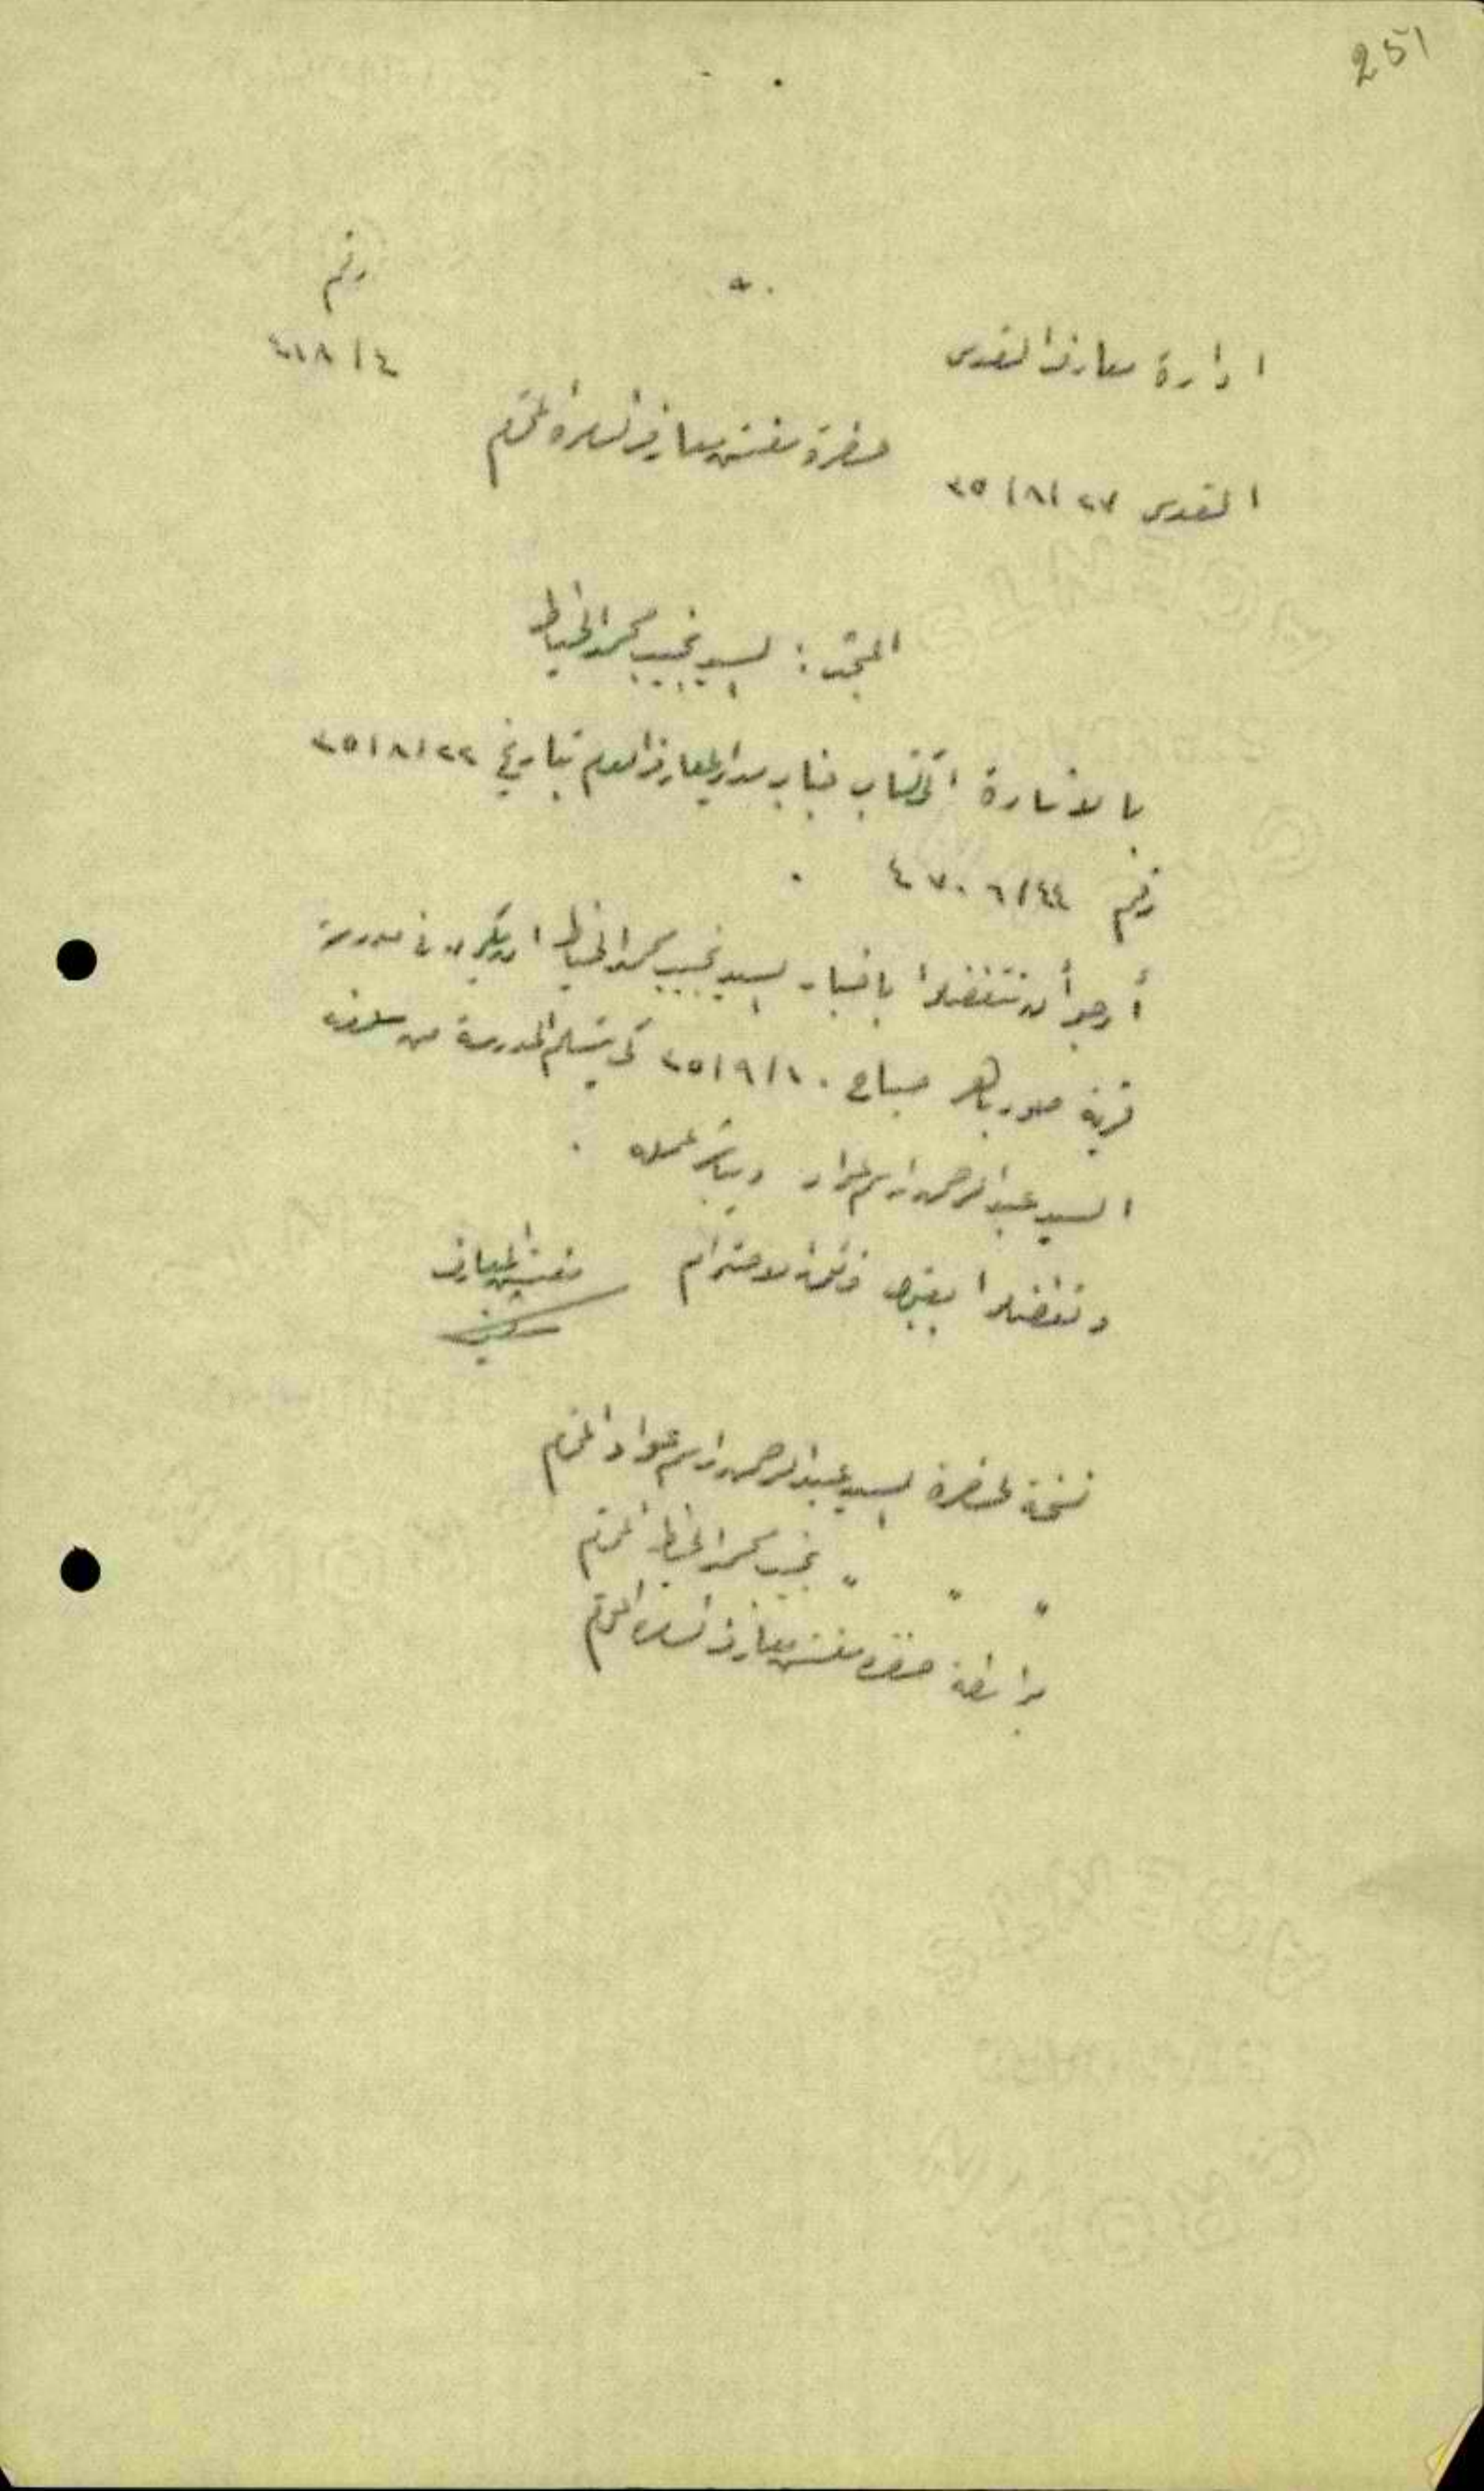 251
رقم
٤ / ٢١٨
ادارة معارف القدس
حضرة مفتش معارف المحترم
القدس ٢٧ /٨/ ٢٥
المبحث : السيد نجيب محمد الخياط
بالاشارة الى كتاب جناب مدير المعارف العام بتاريخ ٢٢ /٨/ ٢٥
رقم ٤٤/ ٤٧٠٦ .
أرجو أن تتفضلوا باخبار السيد نجيب محمد الخياط ان يكون في مدرسة
قرية صور باهر صباح ١٠ /٩/ ٢٥ كي يتسلم المدرسة من سلفه
السيد عبد الرحمن ويباشر عمله .
وتفضلوا بقبول فائق الاحترام مفتش المعارف
نسخة لحضرة السيد عبد الرحمن عواد المحترم
" " " نجيب محمد الخياط المحترم
بواسطة حضرة مفتش معارف المحترم